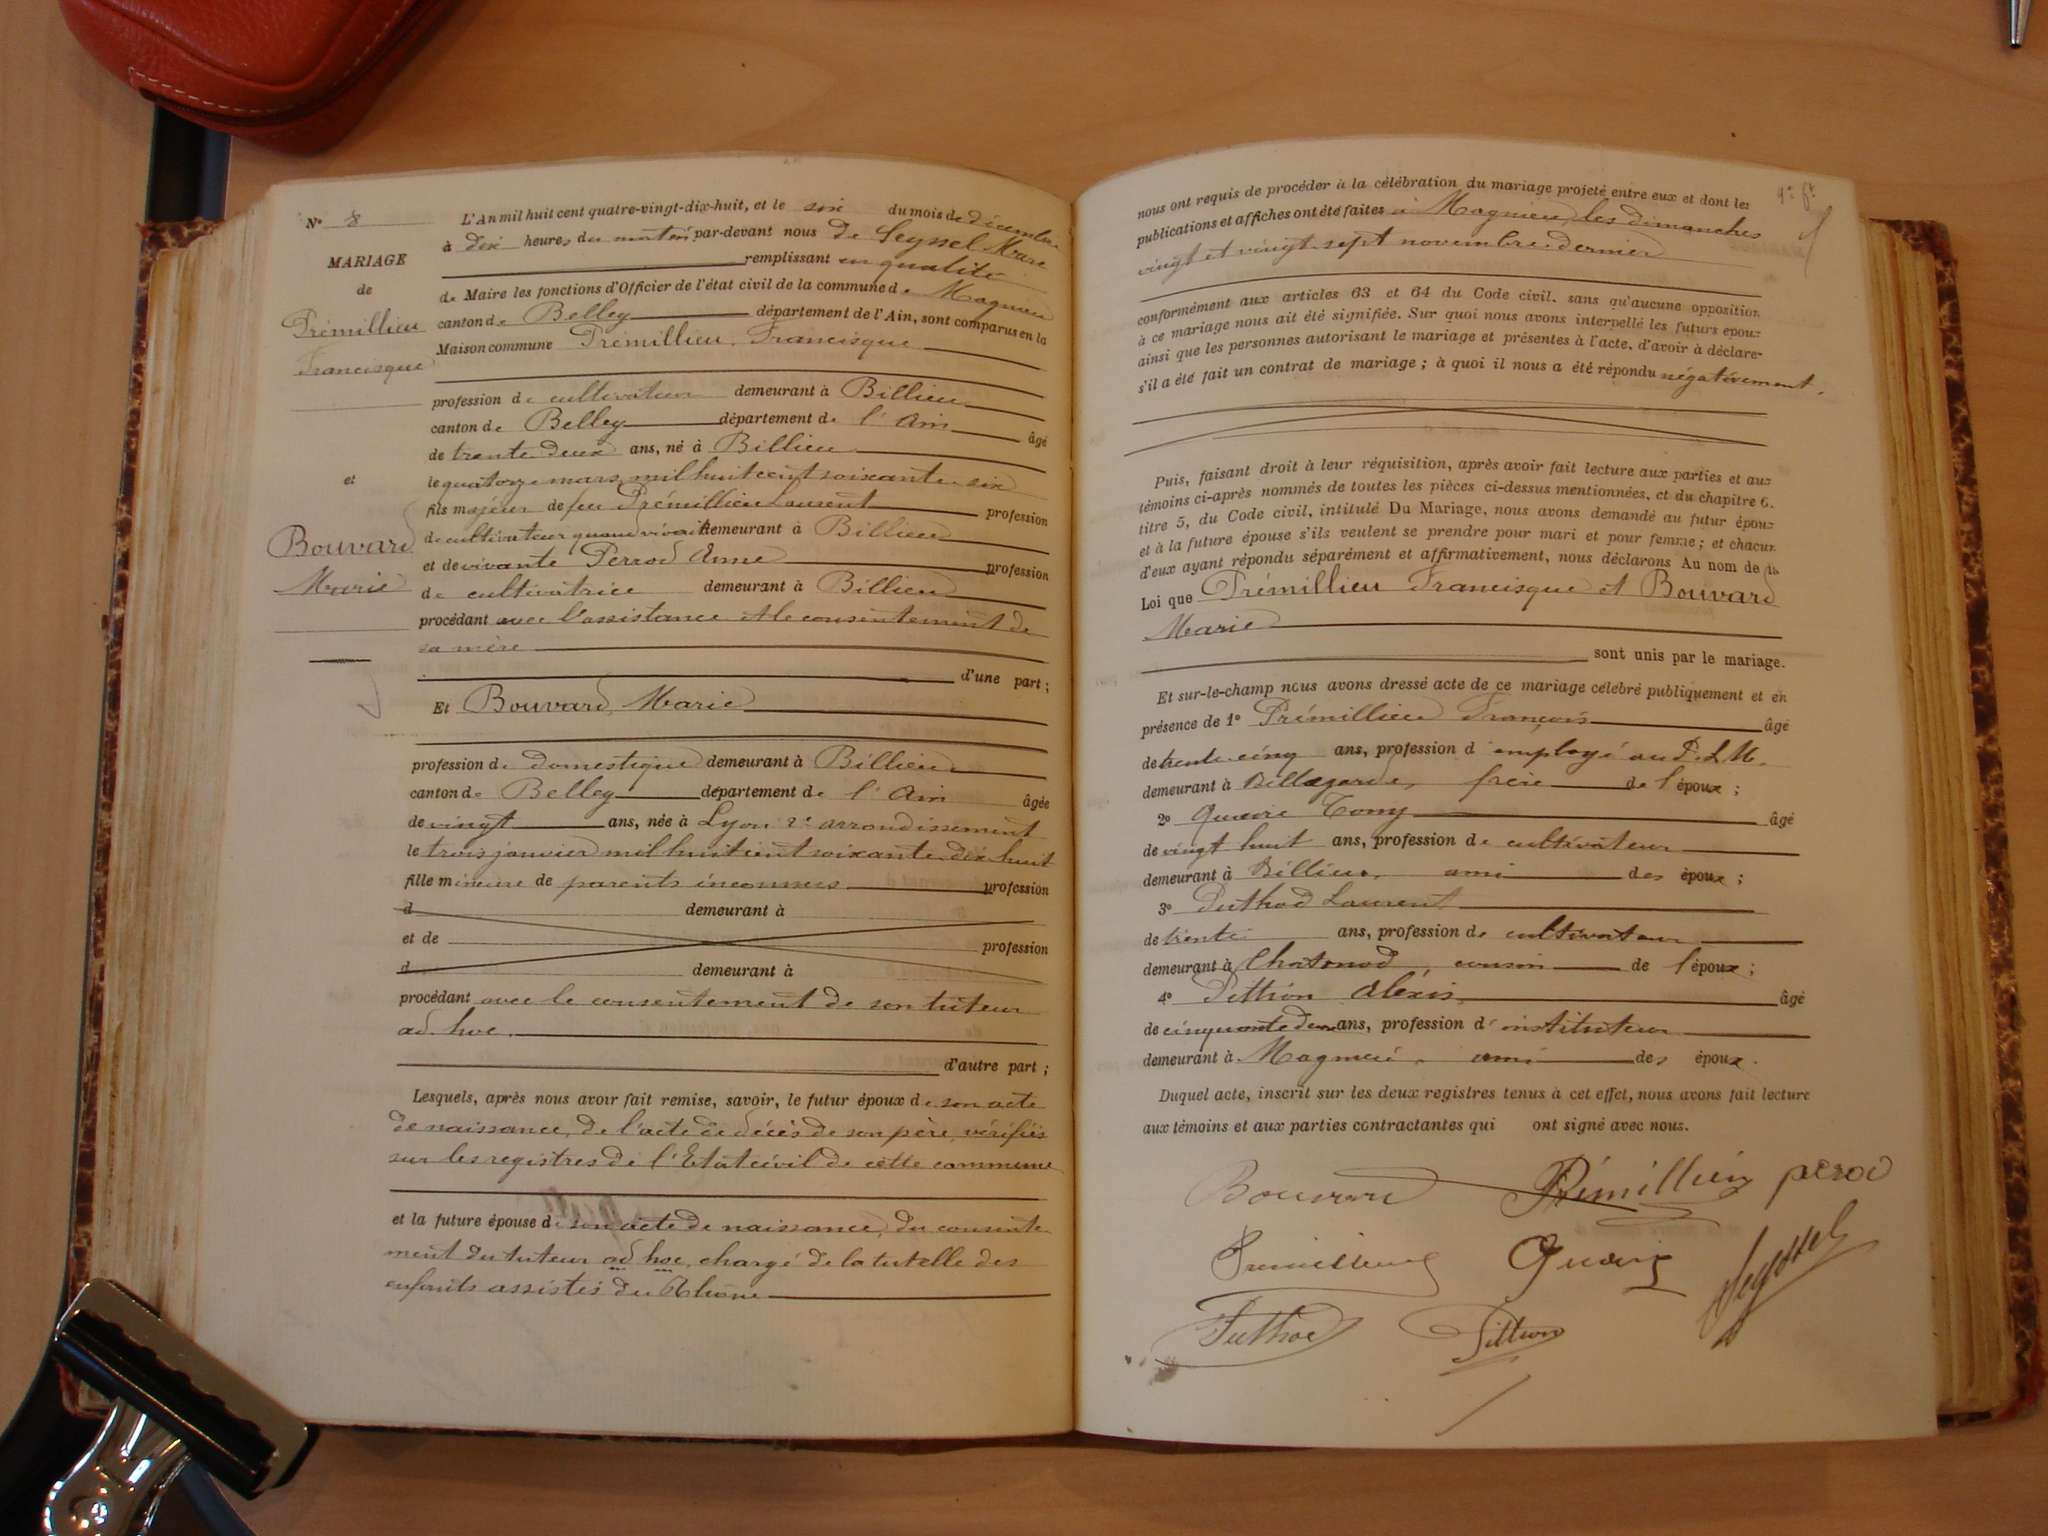 N° 8
MARIAGE
de
Prémillieu
Francisque
et
Bouvard
Marie
L'An mil huit cent quatre-vingt-dix-huit, et le six du mois de décembre
à dix heures du matin par-devant nous de Seyssel Marc
remplissant en qualité
de Maire les fonctions d'Officier de l'état civil de la commune de Magnieu
canton de Belley département de l'Ain, sont comparus en la
Maison commune Prémillieu Francisque
profession de cultivateur demeurant à Billieu
canton de Belley département de l'Ain âgé
de trente deux ans, né à Billieu
le quatorze mars mil huit cent soixante six
fils majeur de feu Prémillieu Laurent profession
de cultivateur quand vivait demeurant à Billieu
et de vivante Perrod Anne profession
de cultivatrice demeurant à Billieu
procédant avec l'assistance et le consentement de
sa mère
d'une part ;
Et Bouvard Marie
profession de domestique demeurant à Billieu
canton de Belley département de l'Ain âgée
de vingt ans, née à Lyon 2e arrondissement
le trois janvier mil huit cent soixante dix huit
fille mineure de parents inconnus profession
d demeurant à
et de profession
d demeurant à
procédant avec le consentement de son tuteur
ad hoc.
d'autre part ;
Lesquels, après nous avoir fait remise, savoir, le futur époux de son acte
de naissance, de l'acte de décès de son père, vérifiés
sur les registres de l'Etat civil de cette commune
et la future épouse de son acte de naissance, du consente-
ment du tuteur ad hoc, chargé de la tutelle des
enfants assistés du Rhône
nous ont requis de procéder à la célébration du mariage projeté entre eux et dont les
publications et affiches ont été faites à Magnieu les dimanches
vingt et vingt sept novembre dernier
conformément aux articles 63 et 64 du Code civil. sans qu'aucune opposition
à ce mariage nous ait été signifiée. Sur quoi nous avons interpellé les futurs époux
ainsi que les personnes autorisant le mariage et présentes à l'acte, d'avoir à déclarer
s'il a été fait un contrat de mariage ; à quoi il nous a été répondu négativement.
Puis, faisant droit à leur réquisition, après avoir fait lecture aux parties et aux
témoins ci-après nommés de toutes les pièces ci-dessus mentionnées, et du chapitre 6.
titre 5, du Code civil, intitulé Du Mariage, nous avons demandé au futur époux
et à la future épouse s'ils veulent se prendre pour mari et pour femme ; et chacun
d'eux ayant répondu séparément et affirmativement, nous déclarons Au nom de la
Loi que Prémillieu Francisque et Bouvard
Marie
sont unis par le mariage.
Et sur-le-champ nous avons dressé acte de ce mariage célébré publiquement et en
présence de 1° Prémillieu François âgé
de trente cinq ans, profession d'employé au P.L.M.
demeurant à Bellegarde, frère de l'époux ;
2° Quaire Tony âgé
de vingt huit ans, profession de cultivateur
demeurant à Billieu, ami des époux ;
3° Duthod Laurent
de trente ans, profession de cultivateur
demeurant à Chatonod, cousin de l'époux ;
4° Pittion Alexis âgé
de cinquante deux ans, profession d'instituteur
demeurant à Magnieu, ami des époux.
Duquel acte, inscrit sur les deux registres tenus à cet effet, nous avons fait lecture
aux témoins et aux parties contractantes qui ont signé avec nous.
Bouvard Prémillieu perod
Prémillieu Seyssel
Duthod Pittion